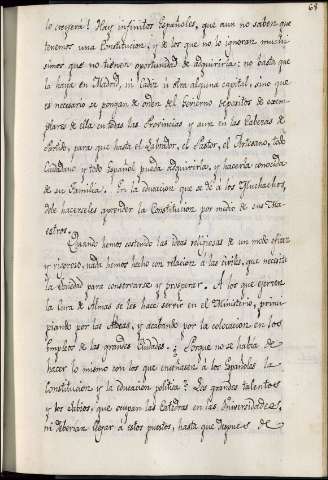 68
lo creyera! Hay infinitos Españoles, que aun no saben que
tenemos una Constitucion, y de los que no lo ignoran muchi-
simos que no tienen oportunidad de adquirirla; no basta que
la haya en Madrid, in Cadiz ú otra alguna capital, sino que
es necesario se pongan de orden del Govierno depositos de exem-
plares de ella en todas las Provincias y aun en las Cabezas de
Partido, para que hasta el Labrador, el Pastor, el Artesano, todo
Ciudadano y todo Español pueda adquirirla, y hacerla conocida
de su Familia. En la educacion que se dé á los Muchachos,
debe hacerseles aprender la Constitucion por medio de sus Ma-
estros.
Quando hemos sostenido las ideas religiosas de un modo eficaz
y riguroso, nada hemos hecho con relacion á las civiles, que necesita
la Sociedad para conservarse y prosperar. A los que exercen
la Cura de Almas se les hace servir en el Ministerio, princi-
piando por las Aldeas, y acabando por la colocacion en los
Empleos de las grandes Ciudades. ¿Porque no se habia de
hacer lo mismo con los que enseñasen á los Españoles la
Constitucion y la educacion politica? Los grandes talentos
y los sabios, que ocupan las Catedras en las Universidades,
ni deberian llegar á estos puestos, hasta que despues de